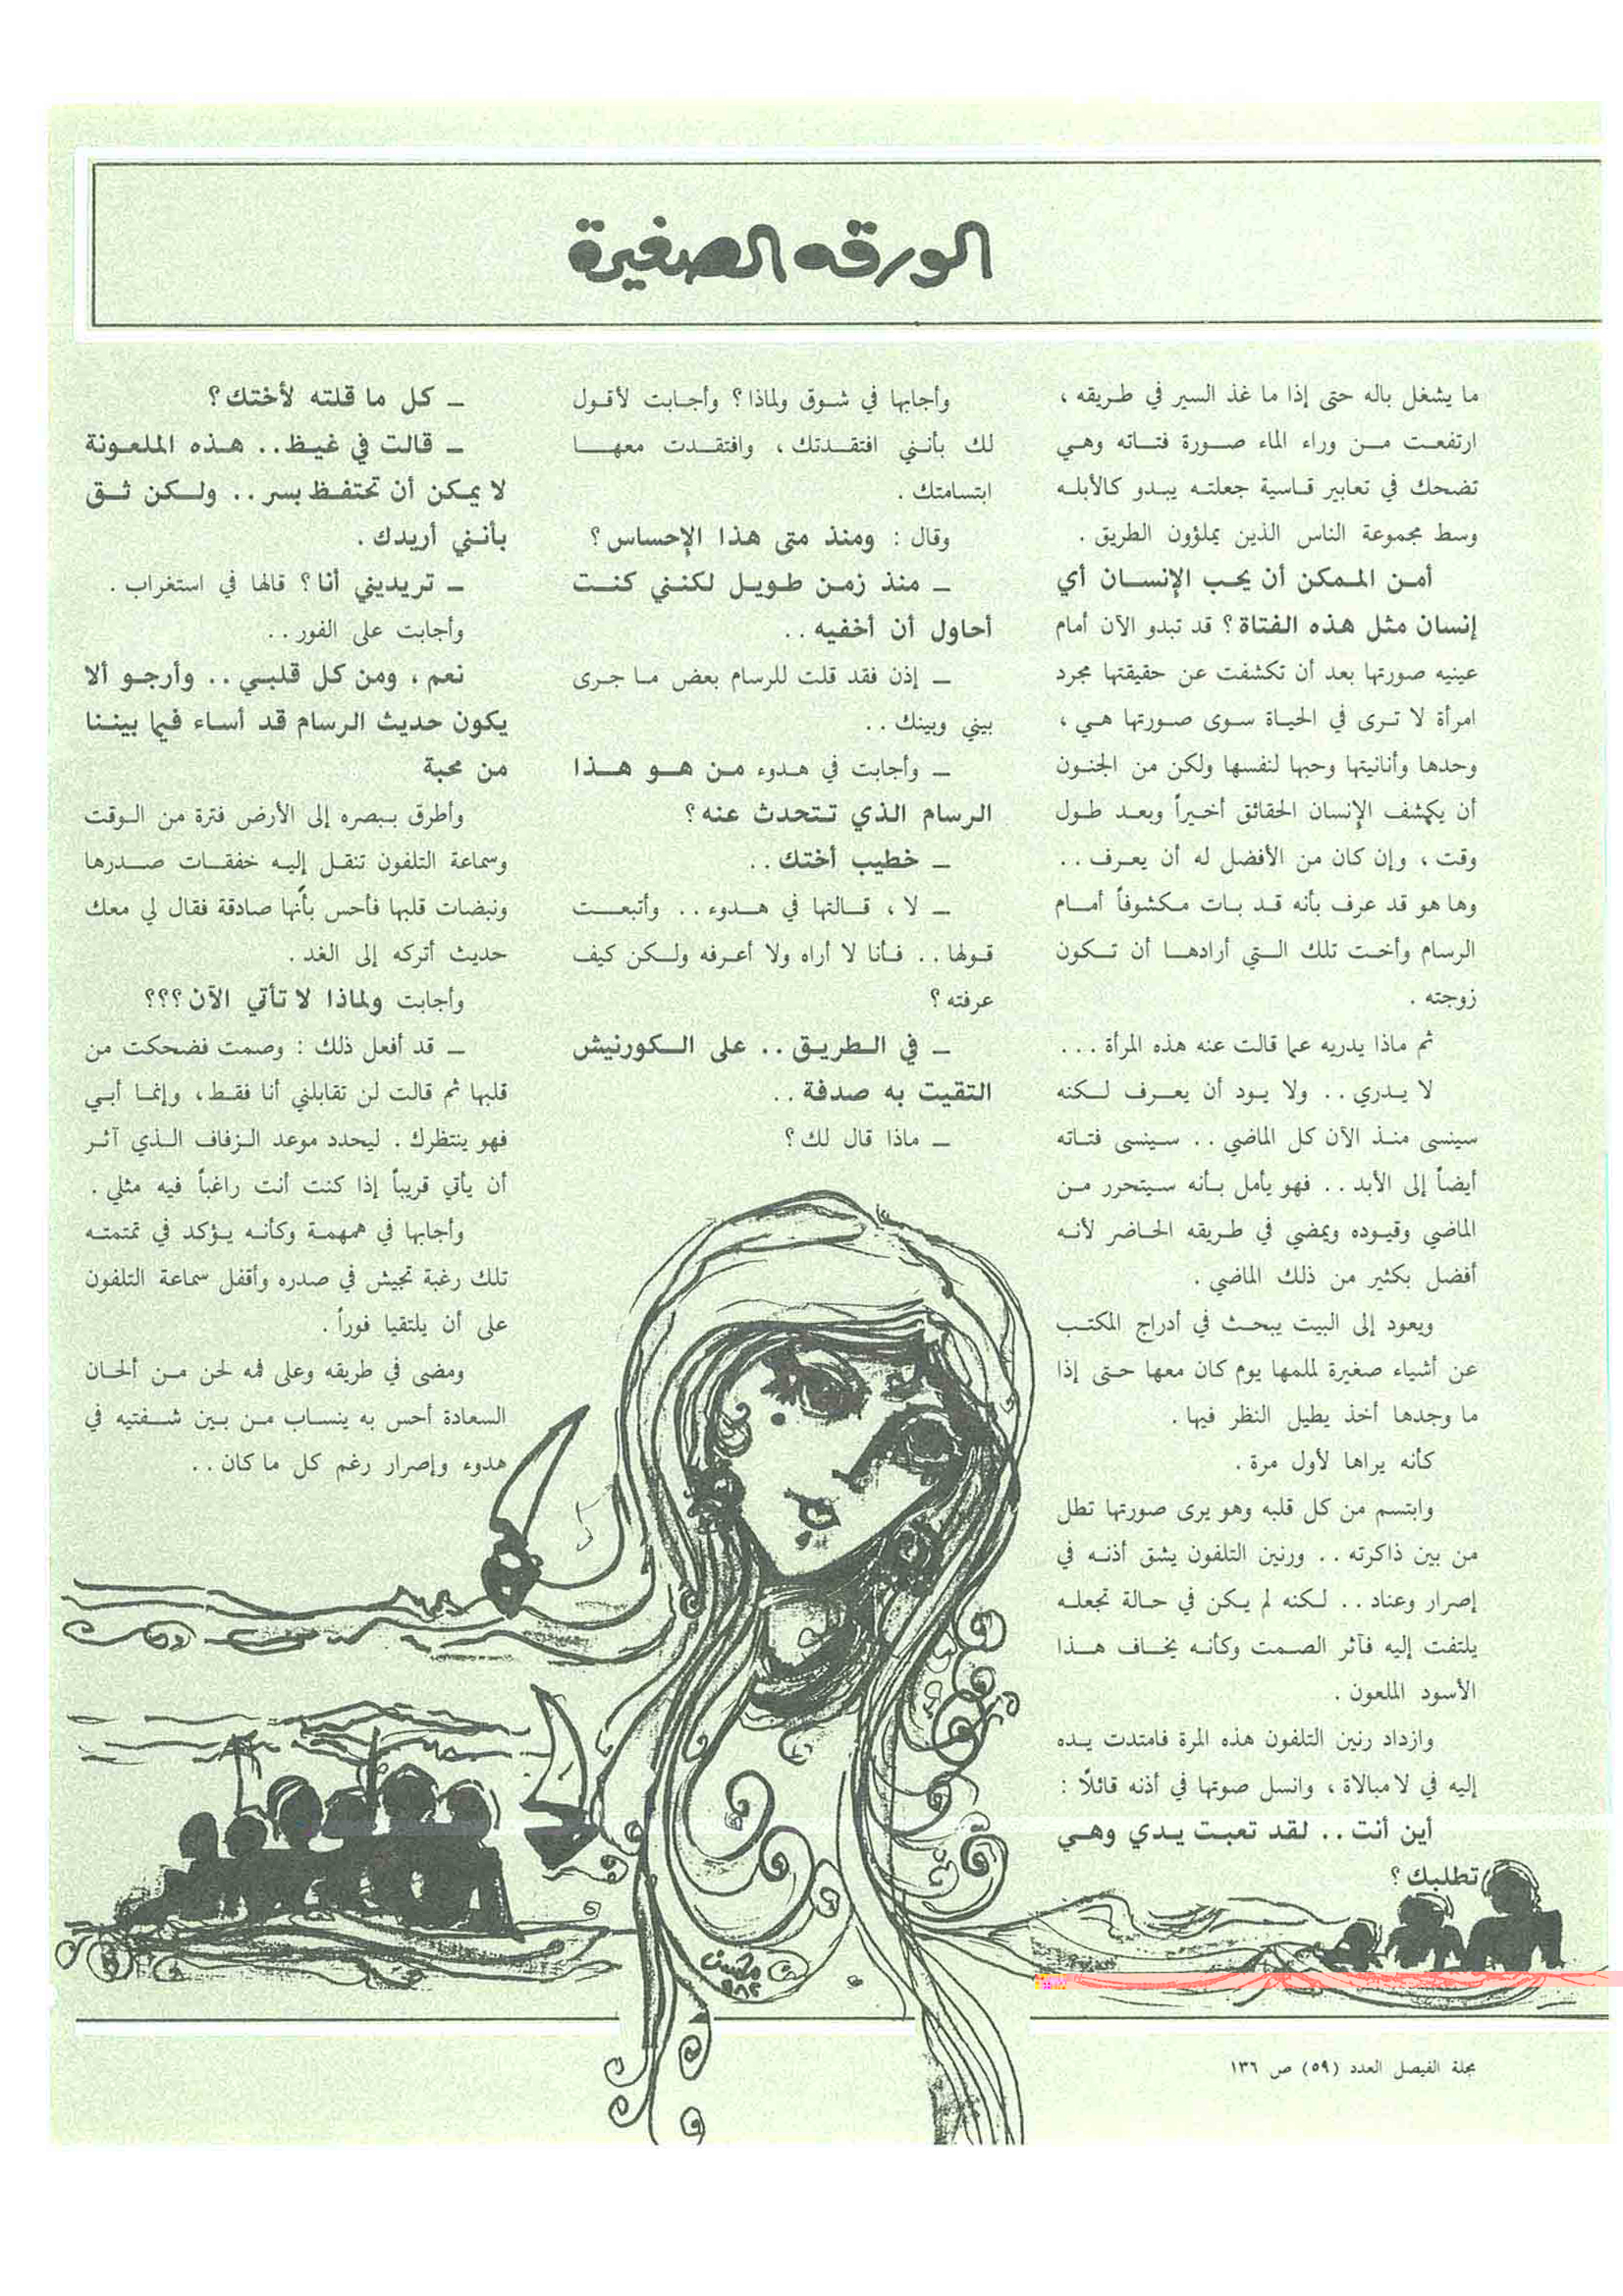 الورقه الصغيرة
ما يشغل باله حتى إذا ما غذ السير في طريقه ،
ارتفعت من وراء الماء صورة فتاته وهي
تضحك في تعابير قاسية جعلته يبدو كالأبله
وسط مجموعة الناس الذين يملؤون الطريق .
أمن الممكن أن يحب الإنسان أي
إنسان مثل هذه الفتاة ؟ قد تبدو الآن أمام
عينيه صورتها بعد أن تكشفت عن حقيقتها مجرد
امرأة لا ترى في الحياة سوى صورتها هي ،
وحدها وأنانيتها وحبها لنفسها ولكن من الجنون
أن يكشف الإنسان الحقائق أخيراً وبعد طول
وقت ، وإن كان من الأفضل له أن يعرف . .
وها هو قد عرف بأنه قد بات مكشوفاً أمام
الرسام وأخت تلك التي أرادها أن تكون
زوجته .
ثم ماذا يدريه عما قالت عنه هذه المرأة . . .
لا يدري . . ولا يود أن يعرف لكنه
سينسى منذ الآن كل الماضي . . سينسى فتاته
أيضاً إلى الأبد . . فهو يأمل بأنه سيتحرر من
الماضي وقيوده ويمضي في طريقه الحاضر لأنه
أفضل بكثير من ذلك الماضي .
ويعود إلى البيت يبحث في أدراج المكتب
عن أشياء صغيرة لملمها يوم كان معها حتى إذا
ما وجدها أخذ يطيل النظر فيها .
كأنه يراها لأول مرة .
وابتسم من كل قلبه وهو يرى صورتها تطل
من بين ذاكرته . . ورنين التلفون يشق أذنه في
إصرار وعناد . . لكنه لم يكن في حالة تجعله
يلتفت إليه فآثر الصمت وكأنه يخاف هذا
الأسود الملعون .
وازداد رنين التلفون هذه المرة فامتدت يده
إليه في لا مبالاة ، وانسل صوتها في أذنه قائلاً :
أين أنت . . لقد تعبت يدي وهي
تطلبك ؟
وأجابها في شوق ولماذا ؟ وأجابت لأقول
لك بأنني افتقدتك ، وافتقدت معها
ابتسامتك .
وقال : ومنذ متى هذا الإحساس ؟
ـ منذ زمن طويل لكنني كنت
أحاول أن أخفيه . .
ـ إذن فقد قلت للرسام بعض ما جرى
بيني وبينك . .
ـ وأجابت في هدوء من هو هذا
الرسام الذي تتحدث عنه ؟
ـ خطيب أختك . .
ـ لا ، قالتها في هدوء . . وأتبعت
قولها . . فأنا لا أراه ولا أعرفه ولكن كيف
عرفته ؟
ـ في الطريق . . على الكورنيش
التقيت به صدفة . .
ـ ماذا قال لك ؟
ـ كل ما قلته لأختك ؟
ـ قالت في غيظ . . هذه الملعونة
لا يمكن أن تحتفظ بسر . . ولكن ثق
بأنني أريدك .
ـ تريديني أنا ؟ قالها في استغراب .
وأجابت على الفور . .
نعم ، ومن كل قلبي . . وأرجو ألا
يكون حديث الرسام قد أساء فيما بيننا
من محبة
وأطرق ببصره إلى الأرض فترة من الوقت
وسماعة التلفون تنقل إليه خفقات صدرها
ونبضات قلبها فأحس بأنها صادقة فقال لي معك
حديث أتركه إلى الغد .
وأجابت ولماذا لا تأتي الآن ؟؟؟
ـ قد أفعل ذلك : وصمت فضحكت من
قلبها ثم قالت لن تقابلني أنا فقط ، وإنما أبي
فهو ينتظرك . ليحدد موعد الزفاف الذي آثر
أن يأتي قريباً إذا كنت أنت راغباً فيه مثلي .
وأجابها في همهمة وكأنه يؤكد في تمتمته
تلك رغبة تجيش في صدره وأقفل سماعة التلفون
على أن يلتقيا فوراً .
ومضى في طريقه وعلى فمه لحن من ألحان
السعادة أحس به ينساب من بين شفتيه في
هدوء وإصرار رغم كل ما كان . .
محسن
٩٨٢
مجلة الفيصل العدد (٥٩) ص ١٣٦